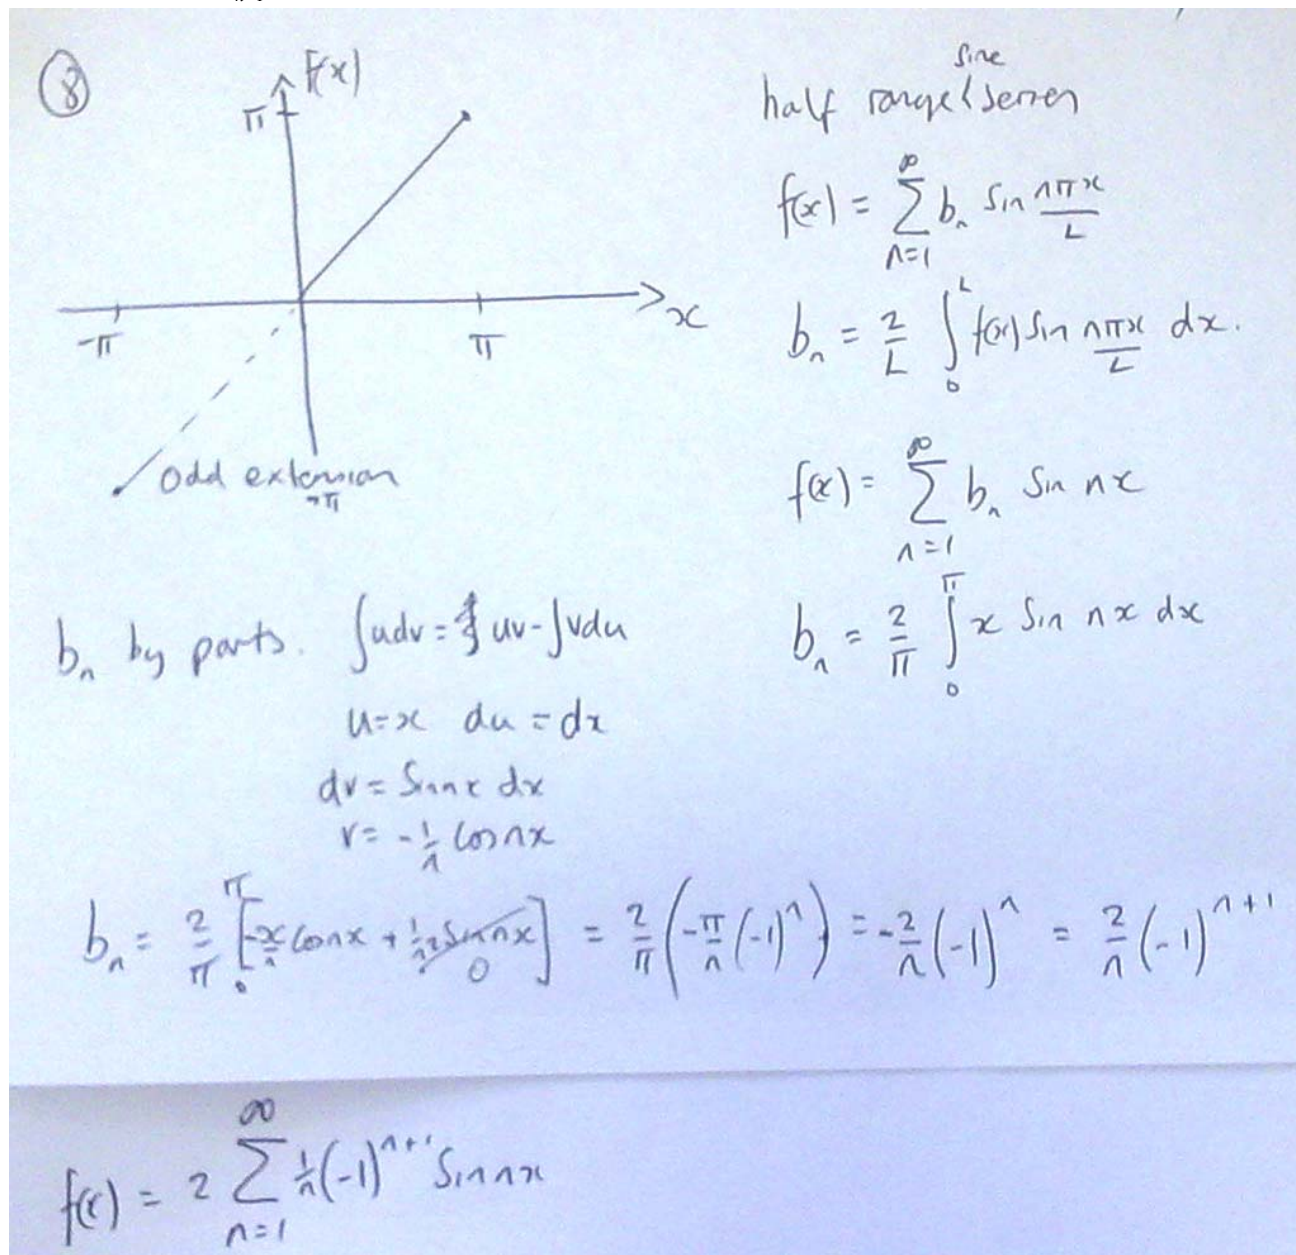 8
F(x)
π
x
-π
π
odd extension
-π
half range sine series
f(x) = ∑_{n=1}^{∞} b_n sin nπx/L
b_n = 2/L ∫_0^L f(x) sin nπx/L dx.
f(x) = ∑_{n=1}^{∞} b_n sin nx
b_n = 2/π ∫_0^π x sin nx dx
b_n by parts. ∫udv = uv - ∫vdu
u=x du = dx
dv = sin nx dx
v = -1/n cos nx
b_n = 2/π [-x/n cos nx + 1/n² sin nx]_0^π 0 = 2/π (-π/n (-1)^n) = -2/n (-1)^n = 2/n (-1)^{n+1}
f(x) = 2 ∑_{n=1}^{∞} 1/n (-1)^{n+1} sin nx